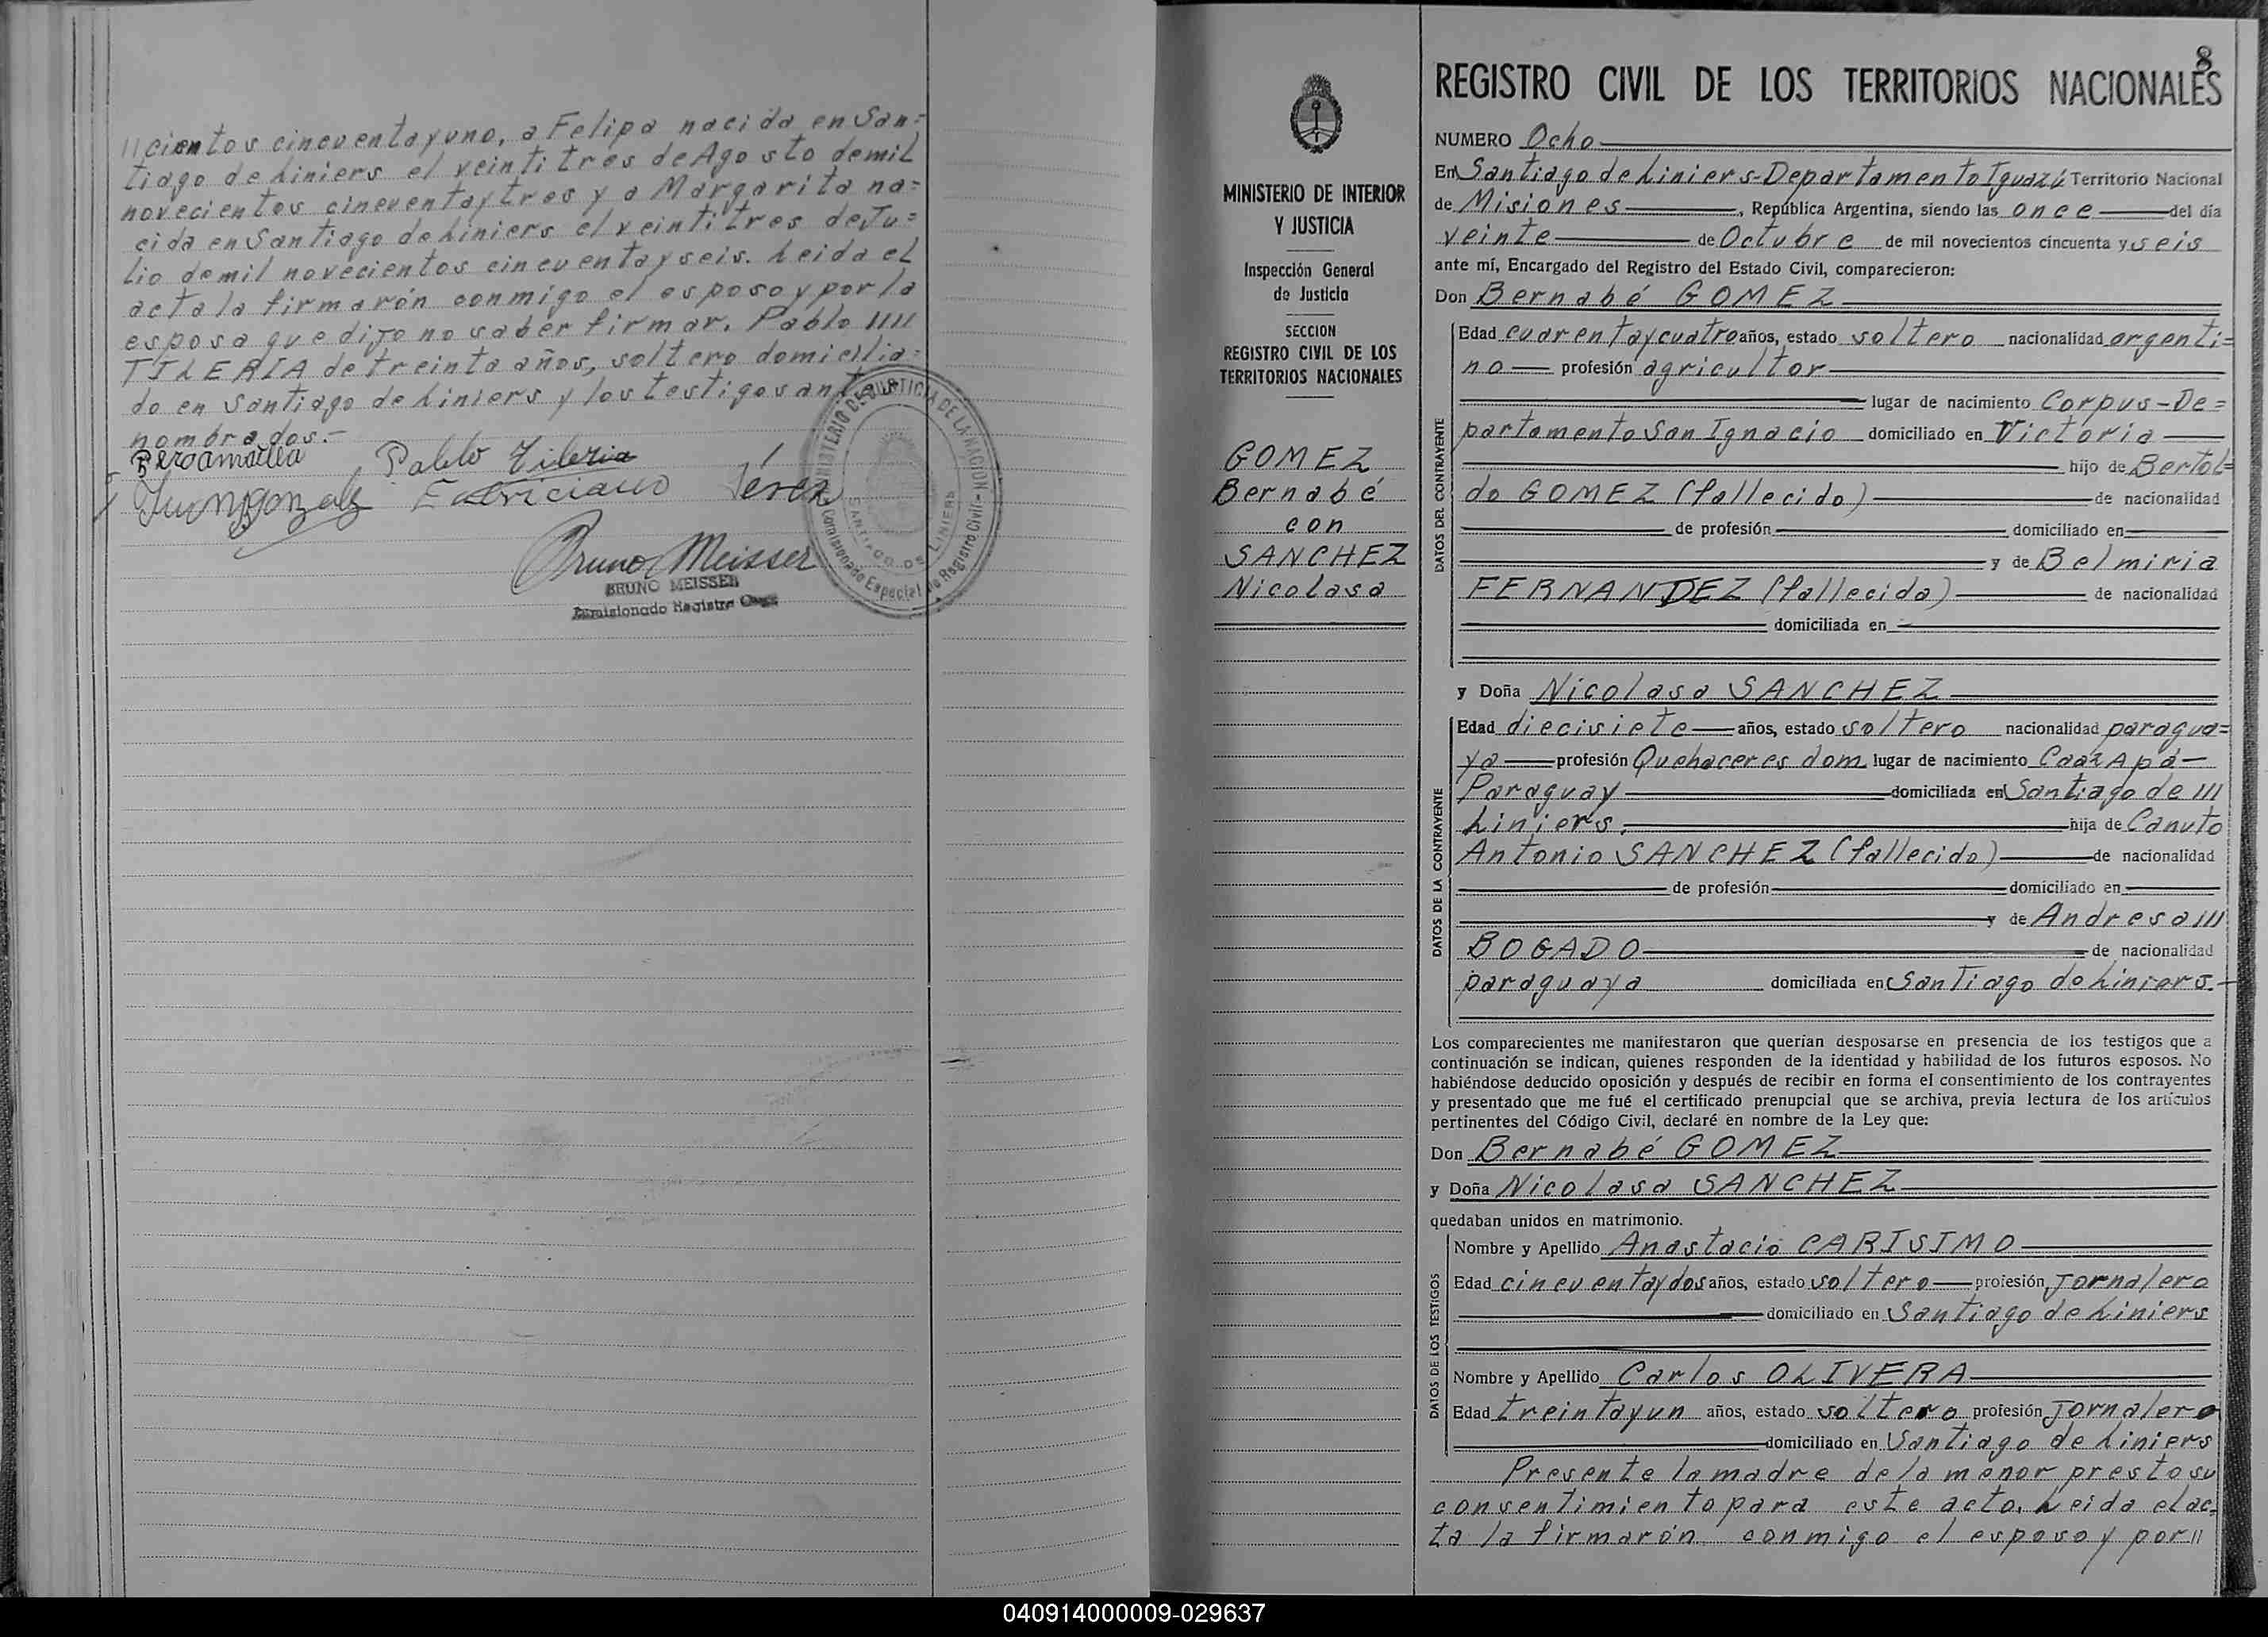 //cientos cincuentayuno, a Felipa nacida en San=
tiago de Liniers el veintitres de Agosto demil
novecientos cincuentaytres y a Margarita na=
cida en Santiago de Liniers el veintitres de Ju=
lio demil novecientos cincuentayseis. Leida el
acta la firmarón conmigo el esposo y por la
esposa que dijo no saber firmar, Pablo ////
TILERIA de treinta años, soltero domicilia=
do en Santiago de Liniers y los testigos ante
nombrados.-
Pablo Tileria
Bruno Meisser
BRUNO MEISSER
Comisionado Registro Civil
MINISTERIO DE JUSTICIA DE LA NACION
SANTIAGO DE LINIERS
Comisionado Especial de Registro Civil
MINISTERIO DE INTERIOR
Y JUSTICIA
Inspección General
de Justicia
SECCION
REGISTRO CIVIL DE LOS
TERRITORIOS NACIONALES
GOMEZ
Bernabé
con
SANCHEZ
Nicolasa
8
REGISTRO CIVIL DE LOS TERRITORIOS NACIONALES
NUMERO Ocho
En Santiago de Liniers-Departamento Iguazú Territorio Nacional
de Misiones, República Argentina, siendo las once del día
veinte de Octubre de mil novecientos cincuenta y seis
ante mí, Encargado del Registro del Estado Civil, comparecieron:
Don Bernabé GOMEZ
DATOS DEL CONTRAYENTE
Edad cuarentaycuatro años, estado soltero nacionalidad argenti=
no profesión agricultor
lugar de nacimiento Corpus-De=
partamento San Ignacio domiciliado en Victoria
hijo de Bertol=
do GOMEZ (fallecido) de nacionalidad
de profesión domiciliado en
y de Belmiria
FERNANDEZ (fallecida) de nacionalidad
domiciliada en
y Doña Nicolasa SANCHEZ
DATOS DE LA CONTRAYENTE
Edad diecisiete años, estado soltero nacionalidad paragua=
ya profesión Quehaceres dom. lugar de nacimiento Caazapá-
Paraguay domiciliada en Santiago de ///
Liniers. hija de Canuto
Antonio SANCHEZ (fallecido) de nacionalidad
de profesión domiciliado en
y de Andresa ///
BOGADO de nacionalidad
paraguaya domiciliada en Santiago de Liniers.-
Los comparecientes me manifestaron que querían desposarse en presencia de los testigos que a
continuación se indican, quienes responden de la identidad y habilidad de los futuros esposos. No
habiéndose deducido oposición y después de recibir en forma el consentimiento de los contrayentes
y presentado que me fué el certificado prenupcial que se archiva, previa lectura de los artículos
pertinentes del Código Civil, declaré en nombre de la Ley que:
Don Bernabé GOMEZ
y Doña Nicolasa SANCHEZ
quedaban unidos en matrimonio.
DATOS DE LOS TESTIGOS
Nombre y Apellido Anastacio CARISIMO
Edad cincuentaydos años, estado soltero profesión Jornalero
domiciliado en Santiago de Liniers
Nombre y Apellido Carlos OLIVERA
Edad treintayun años, estado soltero profesión Jornalero
domiciliado en Santiago de Liniers
Presente la madre de la menor presto su
consentimiento para este acto. Leida el ac=
ta la firmarón conmigo el esposo y por //
040914000009-029637